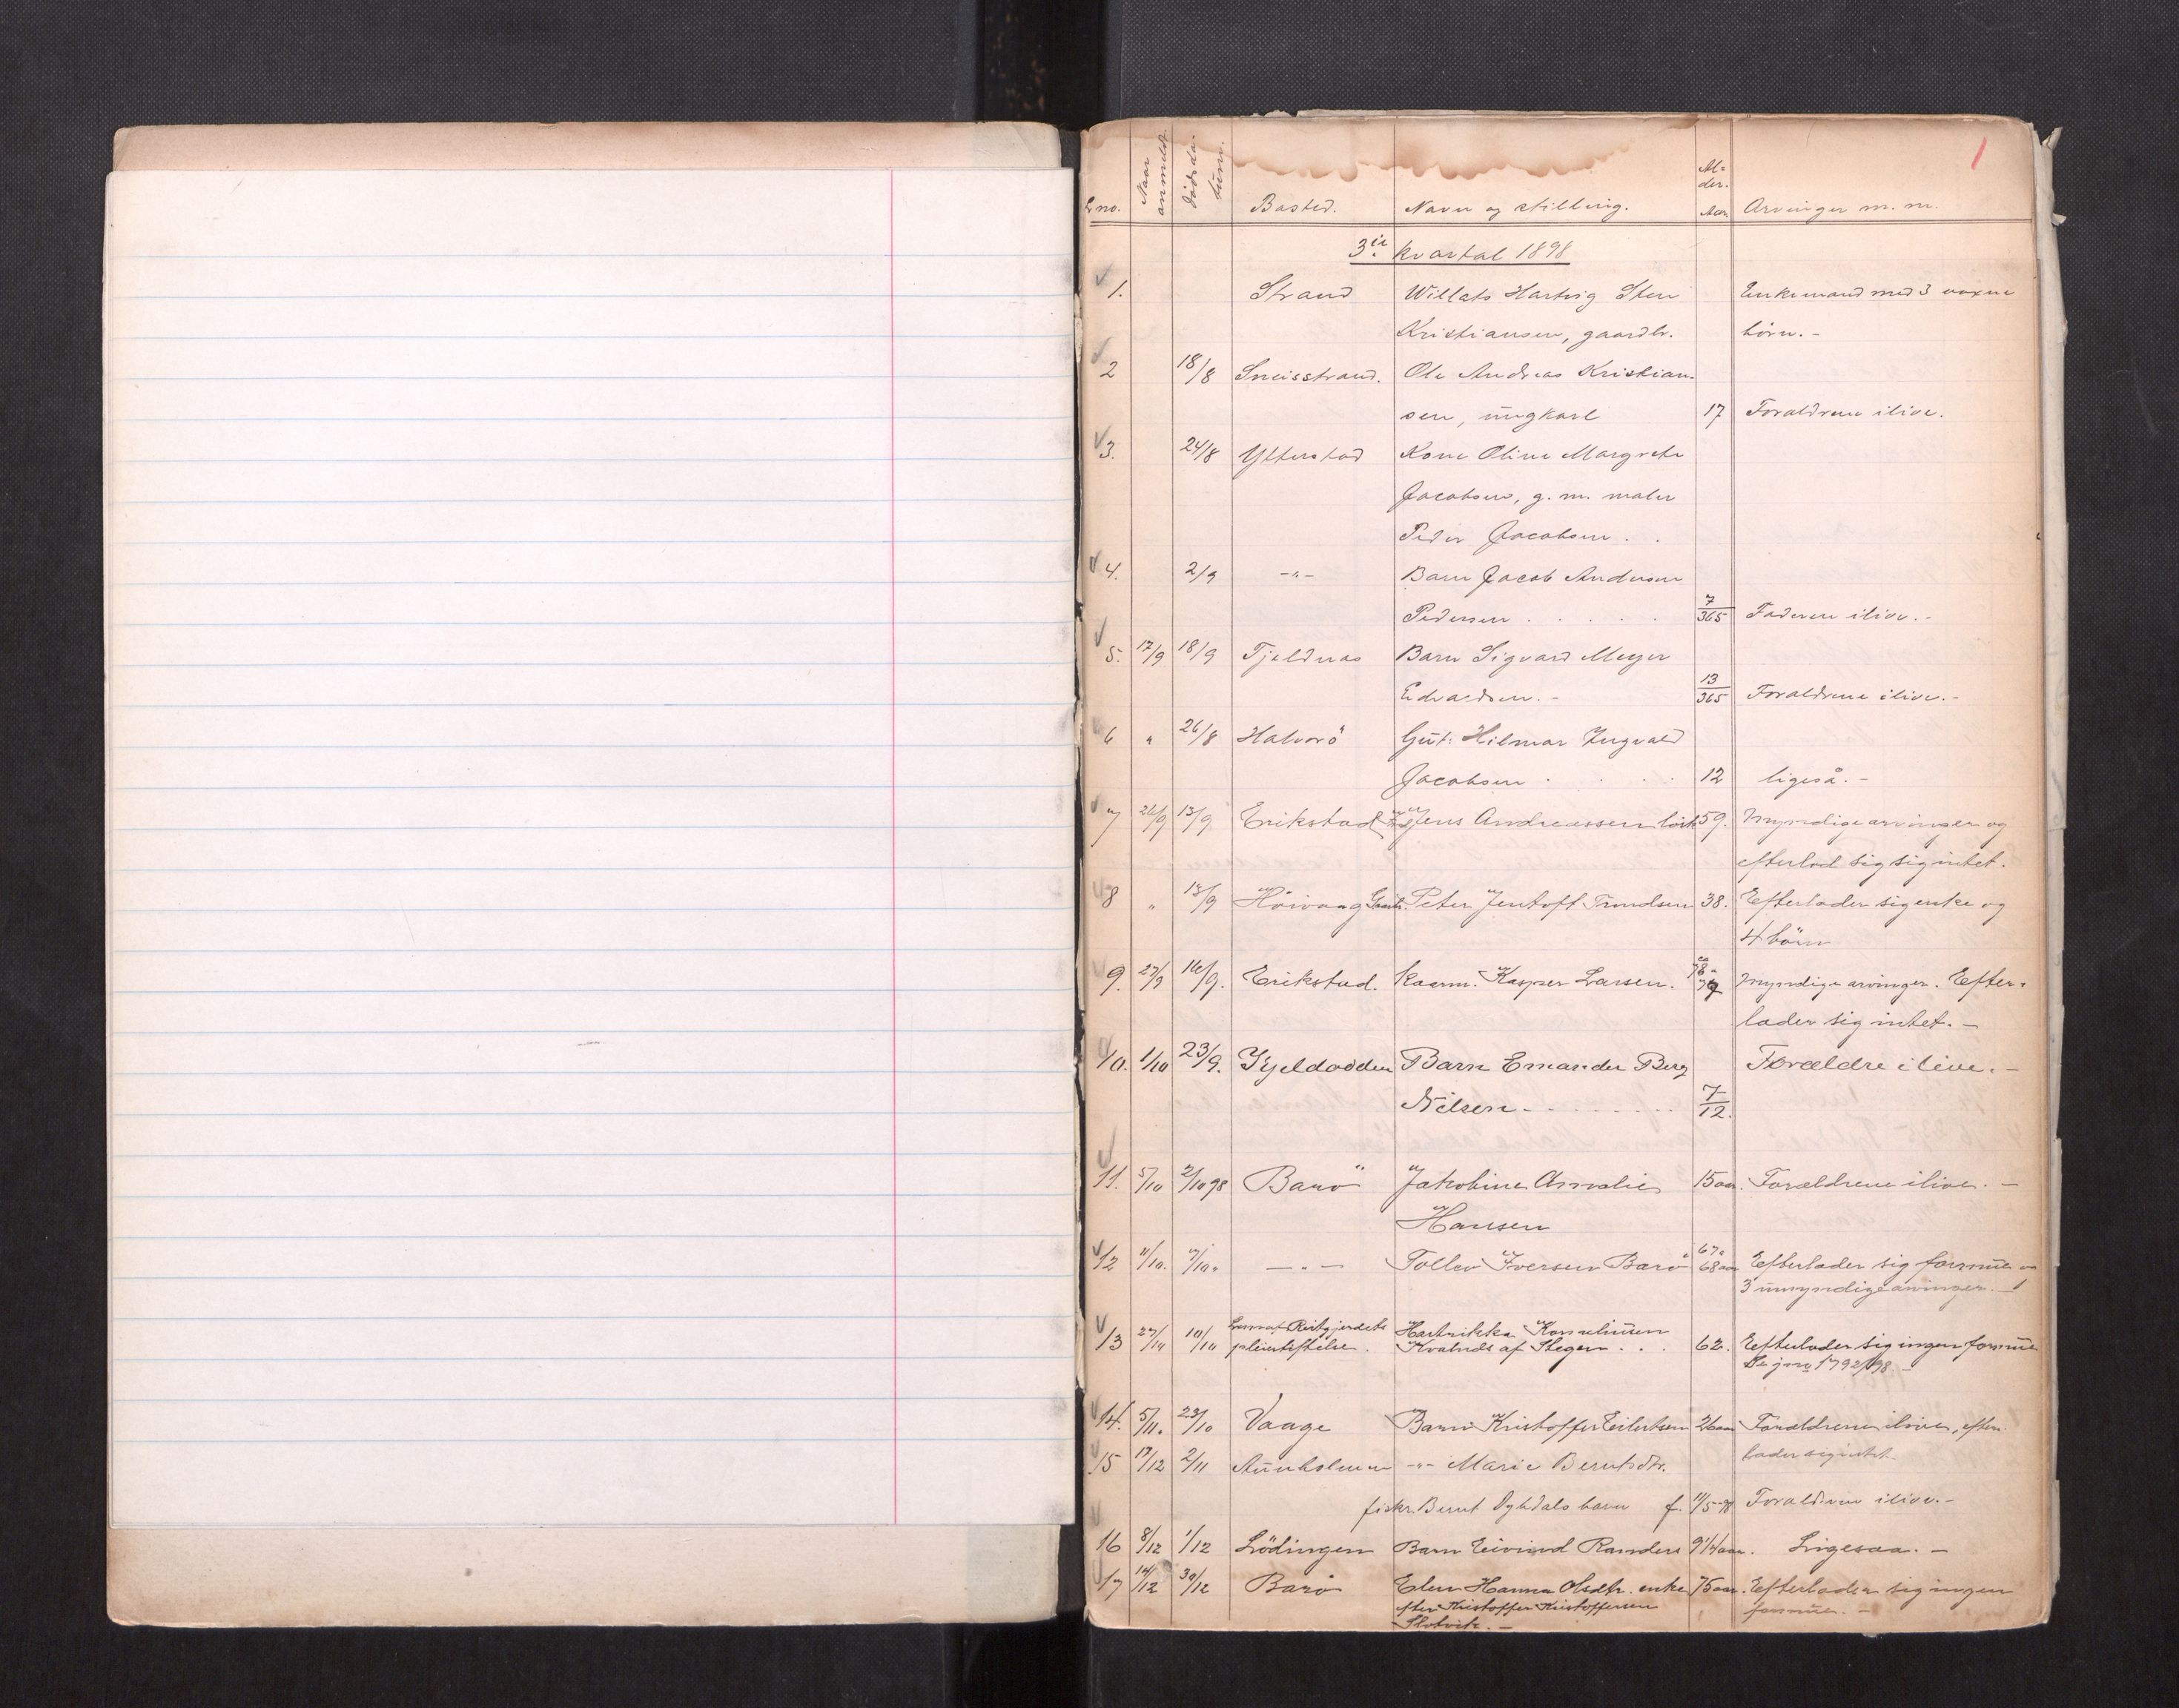 1
Lno. Naar anmeldt. Dødsda- tum. Bosted. Navn og stilling. Al- der. Aar. Arvinger m. m.
3die kvartal 1898
1. Strand Willats Hartvig Sten Enkemand med 3 voxne
Kristiansen, gaardbr. börn.-
2 18/8 Sneisstrand. Ole Andreas Kristian-
sen, ungkarl 17 Forældrene ilive.
3. 24/8 Ytterstad Kone Oline Margrete
Jacobsen, g. m. maler
Peder Jacobsen . .
4. 2/9 -"- Barn Jacob Andersen
Pedersen . . . . . 7/365 Faderen ilive.-
5. 17/9 18/9 Tjeldnæs Barn Sigvard Meyer
Edvardsen.- 13/365 Forældrene ilive.-
6 " 26/8 Halvarö Gut Hilmar Ingvald
Jacobsen . . . . 12 ligeså.-
7 26/9 13/9 Erikstad Jens Andreassen 59. Myndige arvinger og
efterlod sig sig intet.
8 " 13/9 Höivaag Gaardbr. Peter Jentoft Trondsen 38. Efterlader sig enke og
4 börn
9. 27/9 16/9. Erikstad. kaarm. Kasper Larsen. 78 Myndige arvinger. Efter-
lader sig intet.-
10. 1/10 23/9. Kjeldodden Barn Emander Berg Forældre ilive.-
Nilsen - - - - 7/12.
11. 5/10 2/10 98 Barö Jakobine Amalie 15 aar. Forældrene ilive.-
Hansen
12 11/10. 7/10 " -"- Tollev Iversen Barö 67 68 aar Efterlader sig formue og
3 umyndige arvinger.-
13 27/10 10/10 Reitgjerdets Hartvikka Kornelius­en
pleiestiftelse. Kvalnes af Stegen . . . 62. Efterlader sig ingen formue
Se jour 1792/98.-
14. 5/11. 23/10 Vaage Barn Kristoffer Eilertsen 26 aar Forældrene ilive, efter-
lader sig intet.
15 17/12 2/11 Auneholmen -"- Marie Berntsdtr.
fisker Bernt barn f. 11/5-98 Forældrene ilive.-
16 8/12 1/12 Lödingen Barn Eivind Randers 9 1/4 aar. Ligesaa.-
17 14/12 30/12 Barö Elen Hanna Olsdtr. enke 75 aar. Efterlader sig ingen
efter Kristoffer Kristoffersen formue.-
Slotvik.-